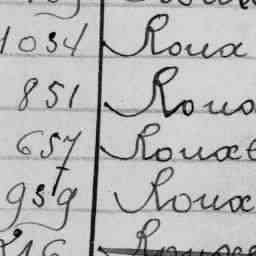 1034 Roux
851 Rous
657 Rouxe
959 Roux